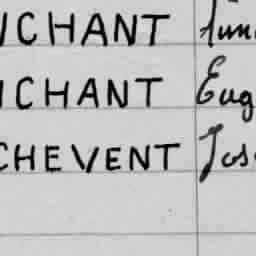 NCHANT
NCHANT Eug
CHEVENT Jos